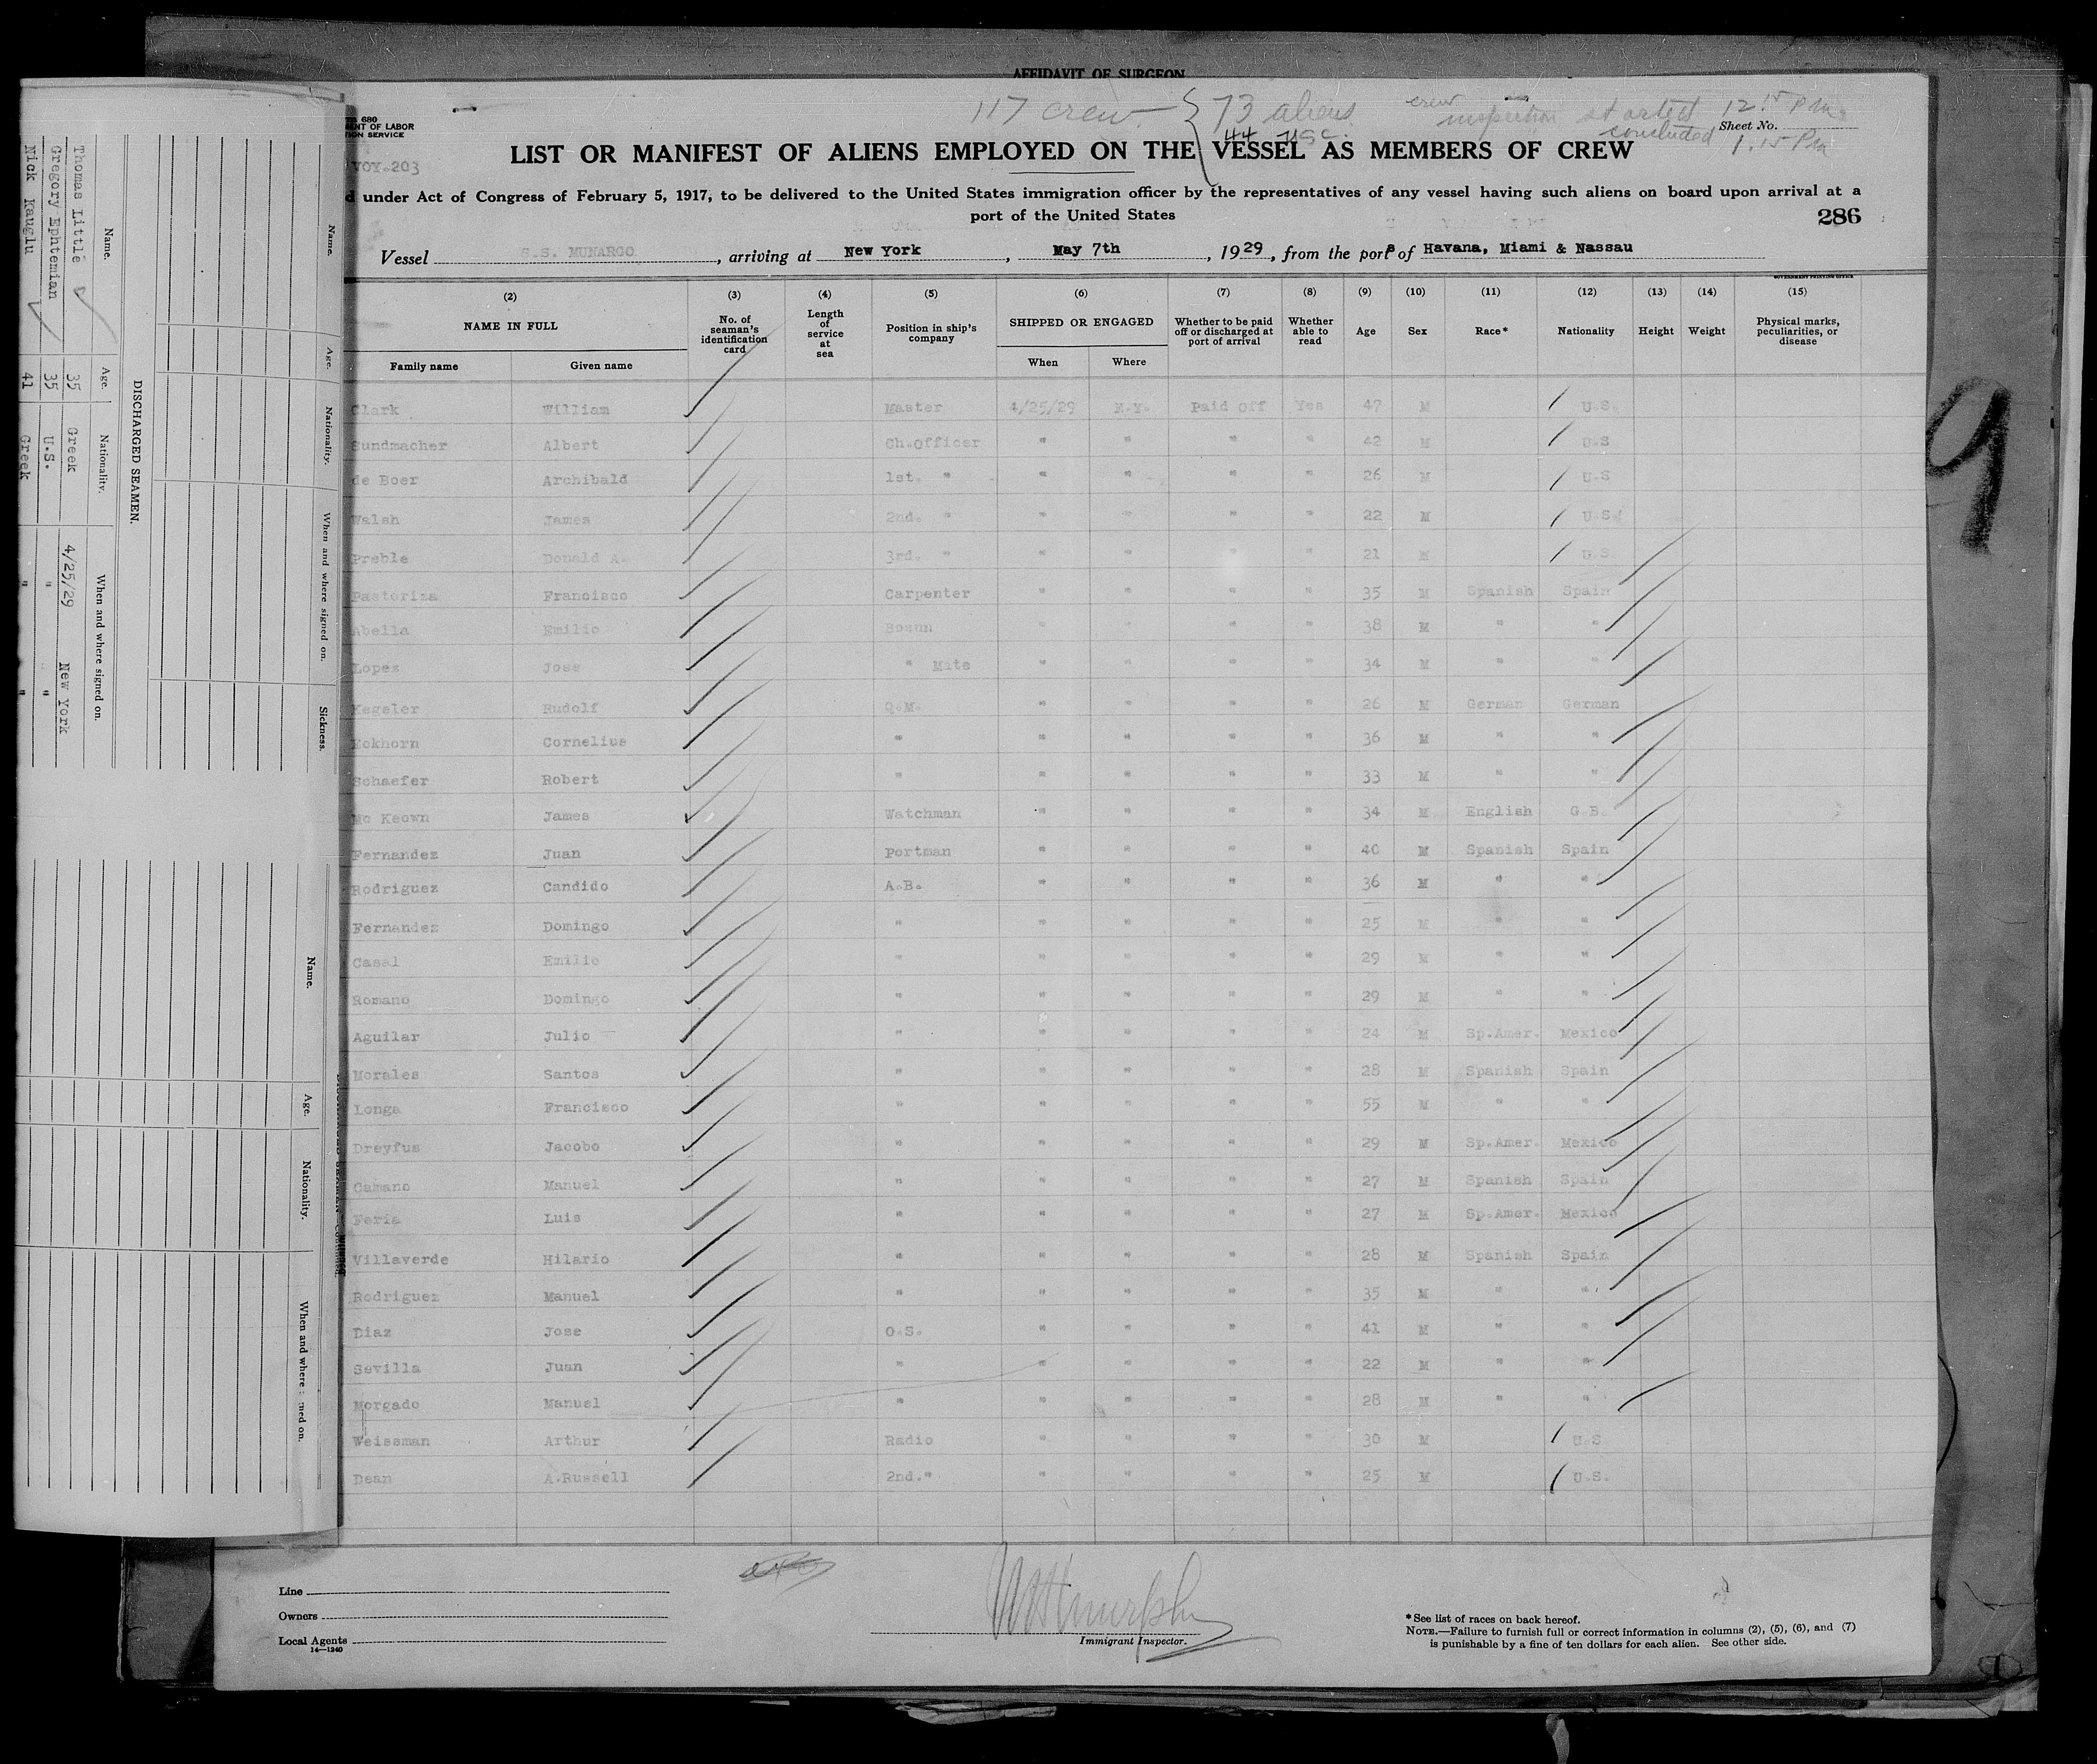 AFFIDAVIT OF SURGEON
117 crew { 73 aliens crew inspection started 12 15 P m.
44 USC. concluded 1.15 Pm
680
ENT OF LABOR
ION SERVICE
Sheet No.
VOY.203
LIST OR MANIFEST OF ALIENS EMPLOYED ON THE VESSEL AS MEMBERS OF CREW
d under Act of Congress of February 5, 1917, to be delivered to the United States immigration officer by the representatives of any vessel having such aliens on board upon arrival at a
port of the United States
286
Vessel S.S. MUNARGO, arriving at New York, May 7th, 1929, from the ports of Havana, Miami & Nassau
GOVERNMENT PRINTING OFFICE
(2) (3) (4) (5) (6) (7) (8) (9) (10) (11) (12) (13) (14) (15)
NAME IN FULL No. of seaman's identification card Length of service at sea Position in ship's company SHIPPED OR ENGAGED Whether to be paid off or discharged at port of arrival Whether able to read Age Sex Race* Nationality Height Weight Physical marks, peculiarities, or disease
Family name Given name When Where
Clark William Master 4/25/29 N.Y. Paid Off Yes 47 M U.S.
Sundmacher Albert Ch.Officer " " " " 42 M U.S
de Boer Archibald 1st. " " " " " 26 M U.S
Walsh James 2nd. " " " " " 22 M U.S.
Preble Donald A. 3rd. " " " " " 21 M U.S.
Pastoriza Francisco Carpenter " " " " 35 M Spanish Spain
Abella Emilio Bosun " " " " 38 M " "
Lopez Jose " Mate " " " " 34 M " "
Kegeler Rudolf Q.M. " " " " 26 M German German
Eckhorn Cornelius " " " " " 36 M " "
Schaefer Robert " " " " " 33 M " "
Mc Keown James Watchman " " " " 34 M English G.B.
Fernandez Juan Portman " " " " 40 M Spanish Spain
Rodriguez Candido A.B. " " " " 36 M " "
Fernandez Domingo " " " " " 25 M " "
Casal Emilio " " " " " 29 M " "
Romano Domingo " " " " " 29 M " "
Aguilar Julio " " " " " 24 M Sp.Amer. Mexico
Morales Santos " " " " " 28 M Spanish Spain
Longa Francisco " " " " " 55 M " "
Dreyfus Jacobo " " " " " 29 M Sp.Amer. Mexico
Camano Manuel " " " " " 27 M Spanish Spain
Feria Luis " " " " " 27 M Sp.Amer. Mexico
Villaverde Hilario " " " " " 28 M Spanish Spain
Rodriguez Manuel " " " " " 35 M " "
Diaz Jose O.S. " " " " 41 M " "
Sevilla Juan " " " " " 22 M " "
Morgado Manuel " " " " " 28 M " "
Weissman Arthur Radio " " " " 30 M U.S
Dean A.Russell 2nd." " " " " 25 M U.S.
Line
Owners
Local Agents
14—1240
Immigrant Inspector.
*See list of races on back hereof.
NOTE.—Failure to furnish full or correct information in columns (2), (5), (6), and (7)
is punishable by a fine of ten dollars for each alien. See other side.
9
Name. Age. Nationality. When and where signed on. Sickness.
DISCHARGED SEAMEN.
Name. Age. Nationality. When and where signed on.
Thomas Little 35 Greek 4/25/29 New York
Gregory Ephtemian 35 U.S. " "
Nick Kauglu 41 Greek " "
Name. Age. Nationality. When and where med on.